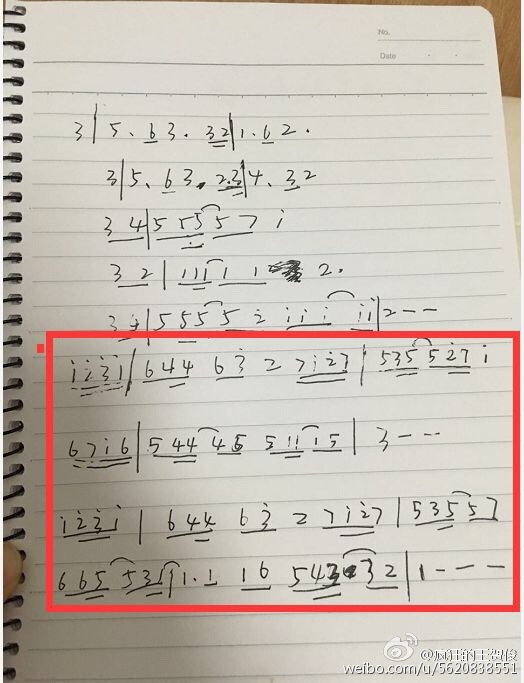 No.
Date
3 | 5. 6 3. 3 2 | 1. 6 2.
3 | 5. 6 3. 2.3 | 4. 3 2
3 4 | 5 5 5 5 7 i
3 2 | 1 1 1 1 1 2.
| 5 5 5 5 2 i i i i i | 2 - - -
i 2 3 i | 6 4 4 6 3 2 7 i 2 7 | 5 3 5 5 2 7 i
6 7 i 6 | 5 4 4 4 5 11 1 5 | 3 - - -
i 2 3 i | 6 4 4 6 3 2 7 i 2 7 | 5 3 5 5 7
6 6 5 5 3 1 | 1. 1 1 6 5 4 3 3 2 | 1 - - -
@疯狂的王数俊
weibo.com/u/5620838551